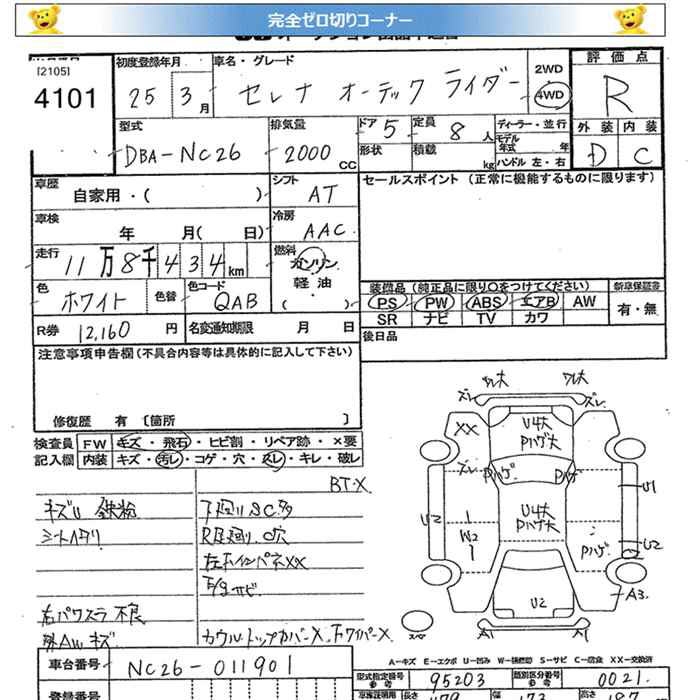 完全ゼロ切りコーナー
[2105]
4101
初度登録年月
25 3 月
車名・グレード
セレナ オーテック ライダー
2WD
4WD
評価点
R
外装 内装
D C
型式
DBA-NC26
排気量
2000 CC
ドア 5
形状
定員 8 人
積載 kg
ディーラー・並行
モデル年式 年
ハンドル 左・右
車歴
自家用・( )
シフト
AT
セールスポイント (正常に機能するものに限ります)
車検
年 月( 日)
冷房
AAC
走行
11万8千434km
燃料
ガソリン
軽油
( )
色
ホワイト
色替
色コード
QAB
装備品(純正品に限り○をつけてください)
PS PW ABS エアB AW
SR ナビ TV カワ
新車保証書
有・無
R券 12,160 円
名変通知期限 月 日
後日品
注意事項申告欄(不具合内容等は具体的に記入して下さい)
修復歴 有 〔箇所 〕
検査員
記入欄
FW キズ・飛石・ヒビ割・リペア跡・×要
内装 キズ・汚レ・コゲ・穴・スレ・キレ・破レ
BT-X
キズU 鉄粉
シートヘタリ
下廻りSC多
R足廻りC穴
左右インパネXX
F/Sサビ
右パワスラ不良
カウルトップカバーX、FワイパーX
ズレ
ワレ大
ワレ大
ズレ
XX
U4大
Pハゲ大
ズレ
Pハゲ
Pハゲ
U1
U2
W2
U4大
Pハゲ大
Pハゲ
U2
U2
A3
A1
A1
スペア
A-キズ E-エクボ U-凹み W-補修跡 S-サビ C-腐食 XX-交換済
車台番号
NC26-011901
型式指定番号
参考
95203
類別区分番号
参考
0021
登録番号